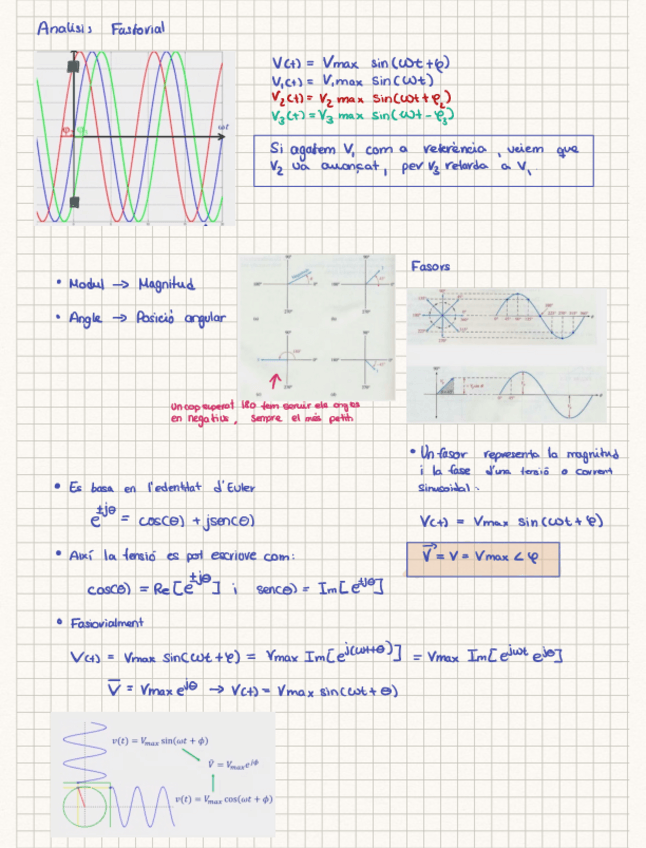 Analisis Fasiorial
V(t) = Vmax sin(ωt+φ)
V₁(t) = V₁max sin(ωt)
V₂(t) = V₂ max sin(ωt+φ₂)
V₃(t) = V₃ max sin(ωt-φ₃)
ωt
Si agafem V₁ com a referència, veiem que
V₂ va avançat, per V₃ retarda a V₁.
• Modul → Magnitud
• Angle → Posició angular
Un cop superat 180 fem servir els angles
en negatiu, sempre el més petit
Fasors
• Un fasor representa la magnitud
i la fase d'una tensió o corrent
sinusoidal.
V(t) = Vmax sin(ωt + φ)
V⃗ = V = Vmax ∠ φ
• Es basa en l'edentitat d'Euler
e^±jθ = cos(θ) + jsen(θ)
• Així la tensió es pot escriove com:
cos(θ) = Re[e^±jθ] i sen(θ) = Im[e^±jθ]
• Fasiorialment
V(t) = Vmax sin(ωt + φ) = Vmax Im[e^j(ωt+θ)] = Vmax Im[e^jωt e^jθ]
V̅ = Vmax e^jθ → V(t) = Vmax sin(ωt + θ)
v(t) = Vmax sin(ωt + ϕ)
V̄ = Vmax e^jϕ
v(t) = Vmax cos(ωt + ϕ)